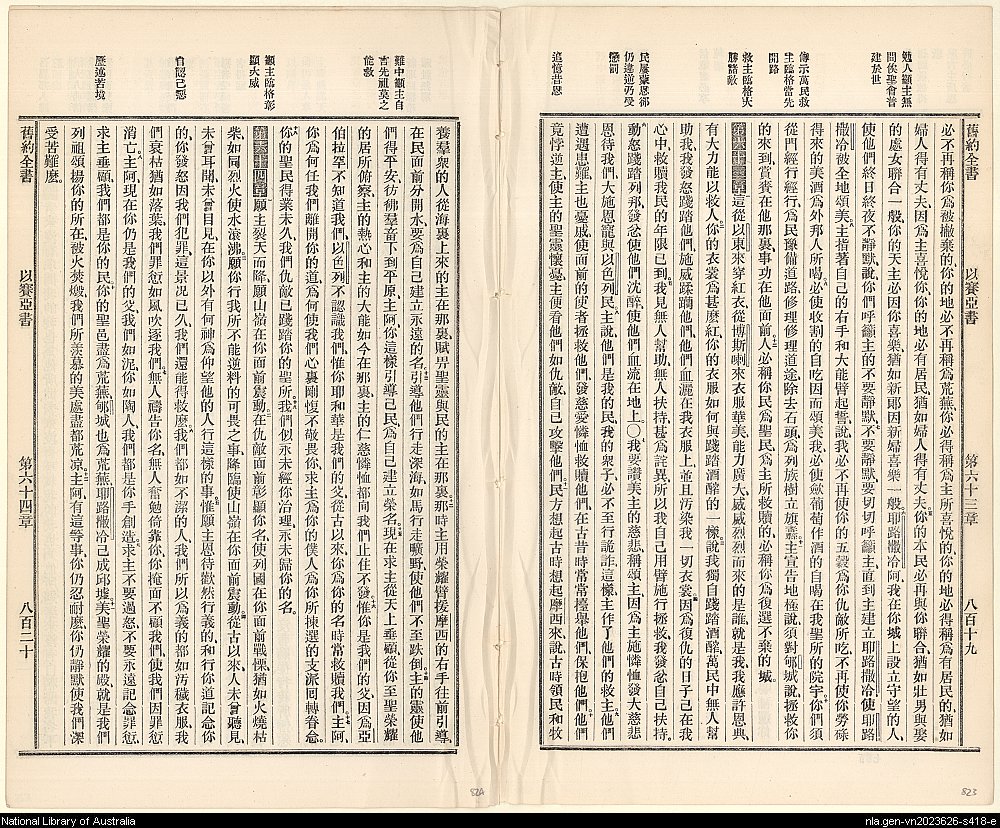 勉人籲主無
間俟聖會普
建於世
傳示萬民救
主臨格當先
開路
救主臨格大
勝諸敵
民屢蒙恩卻
仍違逆乃受
懲罰
追憶昔恩
舊約全書 以賽亞書 第六十三章 八百十九
必不再稱你爲被撇棄的你的地必不再稱爲荒蕪你必得稱爲主所喜悅的你的地必稱爲有居民的猶如
婦人得有丈夫因爲主喜悅你你的地必有居民猶如婦人得有丈夫你的本民必再與你聯合猶如壯男與娶
的處女聯合一般你的天主必因你喜樂猶如新郞因新婦喜樂一般耶路撒冷阿我在你城上設立守望的人
使他們終日終夜不靜默說你們呼籲主的不要靜默不要靜默要切切呼籲主直到主建立耶路撒冷使耶路
撒冷被全地頌美主指著自己的右手和大能臂起誓說我必不再使你的五穀爲你仇敵所吃不再使你勞碌
得來的美酒爲外邦人所喝必使收割的自吃因而頌美我必使斂葡萄作酒的自喝在我聖所的院宇你們須
從門經行經行爲民豫備道路修理修理道途除去石頭爲列族樹立旗纛主宣告地極說須對郇城說拯救你
的來到賞賚在他那裏事功在他面前人必稱你民爲聖民爲主所救贖的必稱你爲復選不棄的城
第六十三章這從以東來穿紅衣從博斯喇來衣服華美能力廣大威威烈烈而來的是誰就是我我應許恩典
有大力能以救人你的衣裳爲甚麼紅你的衣服如何與踐踏酒醡的一樣說我獨自踐踏酒醡萬民中無人幫
助我我發怒踐踏他們施威蹂躪他們他們血灑在我衣服上並且污染我一切衣裳因爲復仇的日子已在我
心中救贖我民的年限已到我見無人幫助無人扶持甚爲詫異所以我自己用臂施行拯救我發忿自己扶持
動怒踐踏列邦發忿使他們沈醉使他們血流在地上〇我要讚美主的慈悲稱頌主因爲主施憐恤發大慈悲
恩待我們大施恩寵與以色列民主說他們是我的民我的衆子必不至行詭詐這樣主作了他們的救主他們
遭遇患難主也憂戚使面前的使者拯救他們發慈愛憐恤救贖他們在古昔時常常擡舉他們保抱他們他們
竟悖逆主使主的聖靈懷憂主便看他們如仇敵自己攻擊他們民方想起古時想起摩西來說古時領民和牧
難中籲主自
言先祖莫之
能救
籲主臨格彰
顯大威
自認己愆
歷述苦境
養羣衆的人從海裏上來的主在那裏賦畀聖靈與民的主在那裏那時主用榮耀臂援摩西的右手往前引導
在民面前分開水要爲自己建立永遠的名引導他們行走深海如馬行走曠野使他們不至跌倒主的靈使他
們得平安彷彿羣畜下到平原主阿你這樣引導己民爲自己建立榮名現在求主從天上垂顧從你至聖榮耀
的居所俯察主的熱心和主的大能如今在那裏主的仁慈憐恤都向我們止住不發惟你是我們的父因爲亞
伯拉罕不知道我們以色列不認識我們惟你耶和華是我們的父從古以來你爲你的名時常救贖我們主阿
你爲何任我們離開你的道爲何使我們心裏剛愎不敬畏你求主爲你的僕人爲你所揀選的支派回轉眷念
你的聖民得業未久我們仇敵已踐踏你的聖所我們似永未經你治理永未歸你的名
第六十四章願主裂天而降願山嶺在你面前震動在仇敵面前彰顯你名使列國在你面前戰慄猶如火燒枯
柴如同烈火使水滾沸願你行我所不能逆料的可畏之事降臨使山嶺在你面前震動從古以來人未曾聽見
未曾耳聞未曾目見在你以外有何神爲仰望他的人行這樣的事惟願主恩待歡然行義的和行你道記念你
的你發怒因我們犯罪這景况已久我們還能得救麼我們都如不潔的人我們所以爲義的都如汚穢衣服我
們衰枯猶如落葉我們罪愆如風吹逐我們無人禱告你名無人奮勉倚靠你你掩面不顧我們使我們因罪愆
消亡主阿現在你仍是我們的父我們如泥你如陶人我們都是你手創造求主不要過怒不要永遠記念罪愆
求主垂顧我們都是你的民你的聖邑盡爲荒蕪郇城也爲荒蕪耶路撒冷已成邱墟美聖榮耀的殿就是我們
列祖頌揚你的所在被火焚燬我們所羨慕的美處盡都荒凉主阿有這等事你仍忍耐麼你仍靜默使我們深
受苦難麼
舊約全書 以賽亞書 第六十四章 八百二十
824
823
National Library of Australia
nla.gen-vn2023626-s418-e